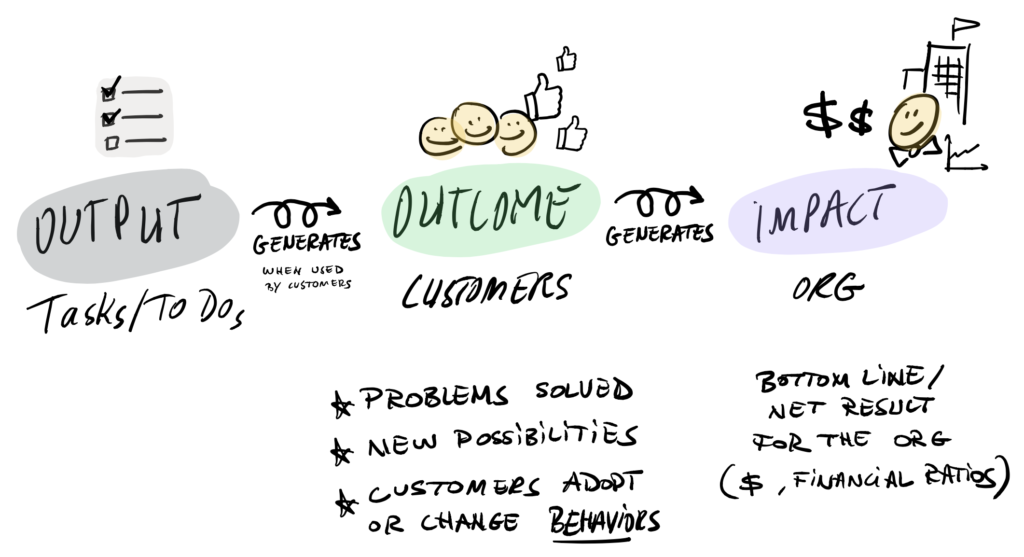 $ $
OUTPUT
GENERATES
WHEN USED
BY CUSTOMERS
Tasks/To Dos
OUTCOME
CUSTOMERS
GENERATES
IMPACT
ORG
PROBLEMS SOLVED
NEW POSSIBILITIES
CUSTOMERS ADOPT
OR CHANGE BEHAVIORS
BOTTOM LINE/
NET RESULT
FOR THE ORG
($, FINANCIAL RATIOS)